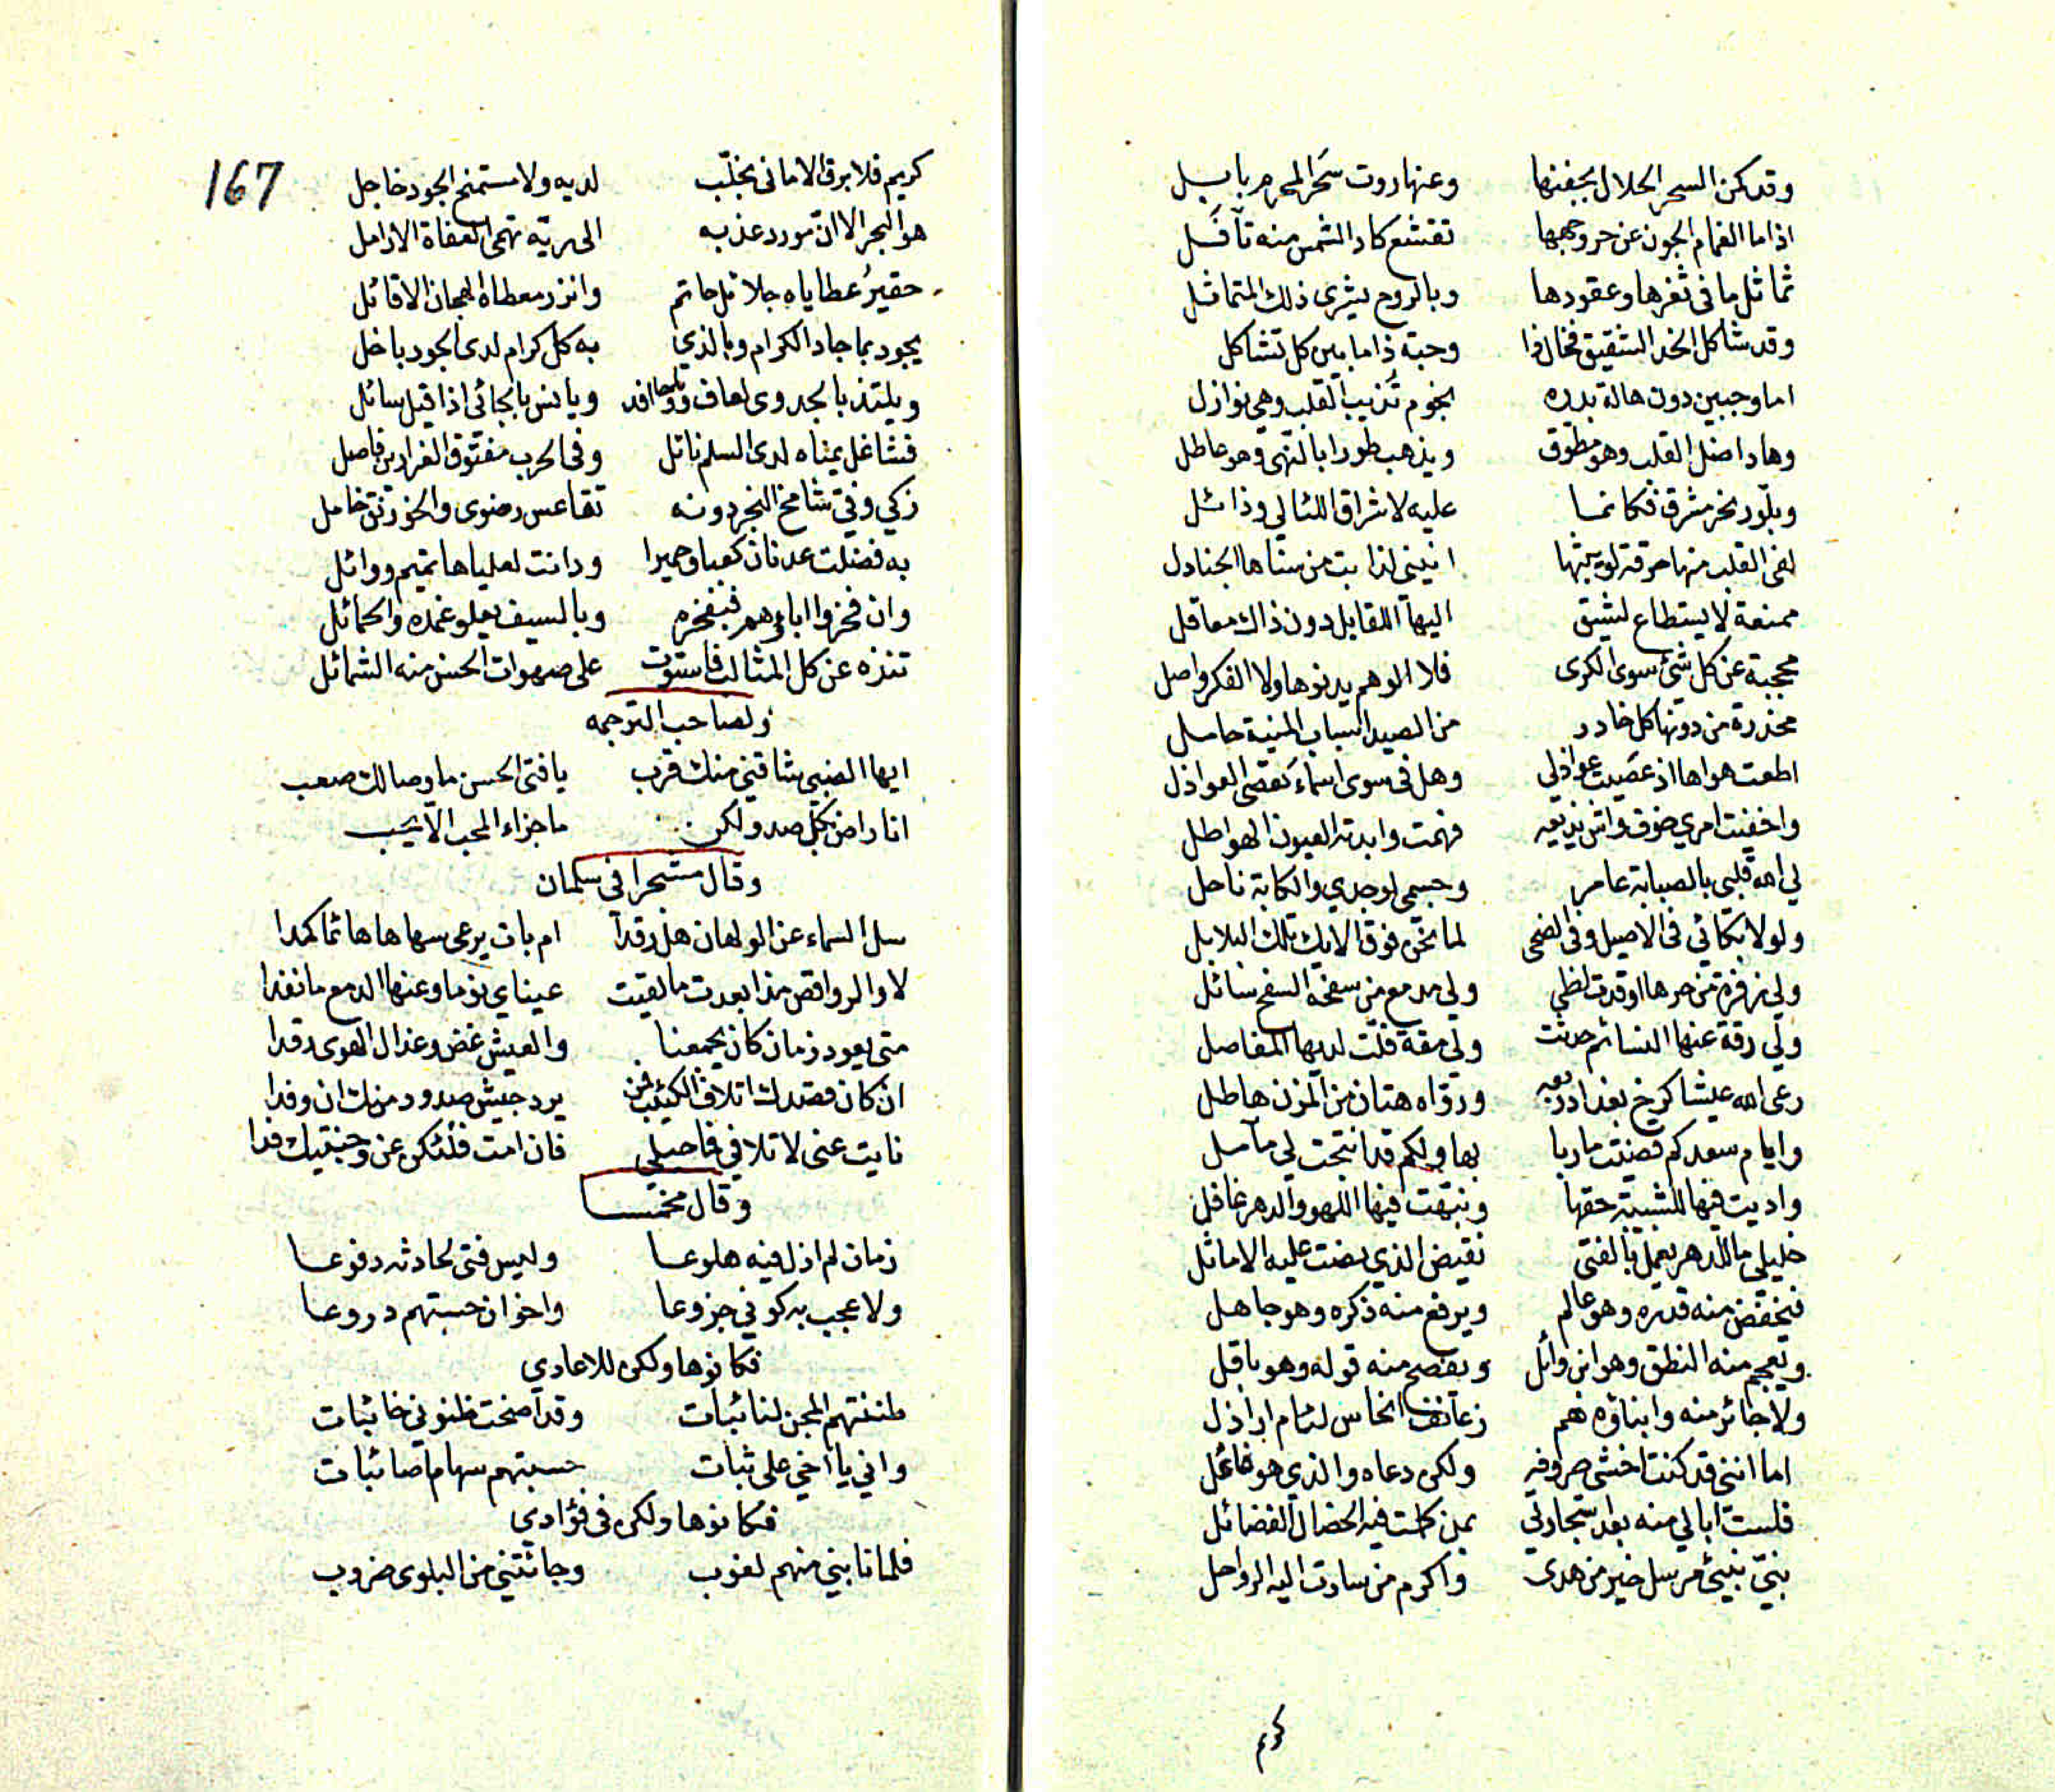 وقد كمن السحر الحلال بجفنها وعنها روت سحر المحرم بابل
اذا ما الغمام الجون عن حر وجهها تقشع كاد الشمس منه تآفل
تماثل ما في ثغرها وعقودها وبالروح يشرى ذلك المتماثل
وقد شاكل الخد الشقيق فخال ذا وحبة ذا ما بين كل تشاكل
اما وجبين دون هالة بدره نجوم تذيب القلب وهي نوازل
وهاد اضل القلب وهو مطوق ويذهب طورا بالنهى وهو عاطل
وبلّور نحر مشرق فكانما عليه لاشراق اللئالي وذائل
لفى القلب منها حرقة لو يبثها انينى لذابت من سناها الجنادل
ممنعة لا يستطاع لشيق اليها اللقا بل دون ذاك معاقل
محجبة عن كل شئ سوى الكرى فلا الوهم يدنوها ولا الفكر واصل
مخدرة من دونها كل خادر من الصيد اسباب المنية حامل
اطعت هواها اذ عصيت عواذلي وهل في سوى اسماء تعصى العواذل
واخفيت امري خوف واش يذيعه فهمت وابدته العيون الهواطل
لي الله قلبي بالصبابة عامر وجسمي لوجدي والكآبة ناحل
ولولا بكائي في الاصيل وفي الضحى لما نحن فوق الايك تلك البلابل
ولي زفرة من حرها اوقدت لظى ولي مدمع من سفحه السفح سائل
ولي رقة عنها النسائم حدثت ولي مقة فلّت لديها المفاصل
رعى الله عيشا كرخ بغداد ربعه ورواه هتان من المزن هاطل
وايام سعد كم قضيت مآربا بها ولكم قد انتجت لي مآمل
واديت فيها للشبيبة حقها ونبّهت فيها اللهو والدهر غافل
خليلي ما للدهر يعمل بالفتى نقيض الذي مضت عليه الاماثل
فيخفض منه قدره وهو عالم ويرفع منه ذكره وهو جاهل
ويعجم منه النطق وهو ابن وائل ويفصح منه قوله وهو باقل
ولا جائر منه وابناؤه هم زعانف انجاس لئام اراذل
اما انني قد كنت اخشى صروفه ولكن دعاه والذي هو فاعل
فلست ابالي منه بعد استجارتي بمن كملت فيه الخصال الفضائل
نبيّ نبئ مرسل خير من هدى واكرم من سارت اليه الرواحل
كريم
167
كريم فلا برق الاماني بخلّب لديه ولا مستمنح الجود خاجل
هو البحر الا ان مورد عذبه الى ريّه تهمي العفاة الارامل
حقير عطاياه جلائل حاتم وانزر معطاه الهجان الاقائل
يجود بما جاد الكرام وبالذي به كل كرام لدى الجود باخل
ويلتذ بالجدوى لعاف ووافد ويانس بالجاني اذا قيل سائل
فشاغل يمناه لدى السلم نائل وفي الحرب مفتوق الغرارين فاصل
زكي وفي شامخ النجر دونه تقاعس رضوى والخورنق خامل
به فضلت عدنان كعبا وحميرا ودانت لعلياها تميم ووائل
وان فخروا اباؤهم فبفخره وبالسيف يعلو غمده والحمائل
تنزه عن كل المثالب فاستوت على صهوات الحسن منه الشمائل
ولصاحب الترجمه
ايها الضبي شاقني منك قرب يا فتى الحسن ما وصالك صعب
انا راض بكل صد ولكن ما جزاء المحب الا يحب
وقال متشحرا في سلمان
سل السماء عن الولهان هل رقدا ام بات يرعى سهاها هائما كمدا
لا والرواقص مذ ابعدت ما لقيت عيناي نوما وعنها الدمع ما نفدا
متى يعود زمان كان يجمعنا والعيش غض وعذال الهوى رقدا
ان كان قصدك اتلاف الكئيب فمن يرد جيش صدود منك ان وفدا
نايت عني لا تلافي فاصيلي فان امت فلتكن عن وجنتيك فدا
وقال مخمسا
زمان لم ازل فيه هلوعا وليس فتى لحادثه دفوعا
ولا عجب به كوني جزوعا واخوان حسبتهم دروعا
فكانوها ولكن للاعادي
ظننتهم المجن لنائبات وقد آضحت ظنوني خائبات
واني يا اخي على ثبات حسبتهم سهاما صائبات
فكانوها ولكن في فؤادي
فلما نابني منهم لغوب وجائتني من البلوى ضروب